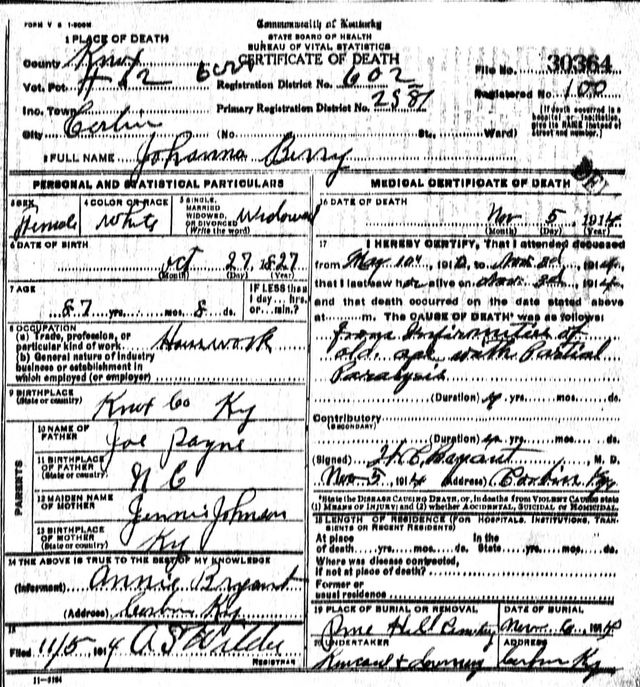 FORM V S 1-500M
Commonwealth of Kentucky
STATE BOARD OF HEALTH
BUREAU OF VITAL STATISTICS
CERTIFICATE OF DEATH
1 PLACE OF DEATH
County Knox
Vot. Pct. 4 12
Registration District No. 602
File No. 30364
Inc. Town
Primary Registration District No. 2581
Registered No. 100
City Corbin (No St., Ward)
(If death occurred in a hospital or institution, give its NAME instead of street and number.)
2 FULL NAME Johanna Berry
PERSONAL AND STATISTICAL PARTICULARS
3 SEX Female
4 COLOR OR RACE White
5 SINGLE, MARRIED WIDOWED, OR DIVORCED (Write the word) Widowed
6 DATE OF BIRTH
Oct 27, 1827
(Month) (Day) (Year)
7 AGE
87 yrs. mos. 8 ds.
IF LESS than 1 day, hrs. or min.?
8 OCCUPATION
(a) Trade, profession, or particular kind of work Housework
(b) General nature of industry business or establishment in which employed (or employer)
9 BIRTHPLACE
(State or country) Knox Co Ky
PARENTS
10 NAME OF FATHER Joe Payne
11 BIRTHPLACE OF FATHER (State or country) N C
12 MAIDEN NAME OF MOTHER Jennie Johnson
13 BIRTHPLACE OF MOTHER (State or country) Ky
14 THE ABOVE IS TRUE TO THE BEST OF MY KNOWLEDGE
(Informant) Annie Bryant
(Address) Corbin Ky
15
Filed 11/5 1914 A S Wilder
REGISTRAR
11-3184
MEDICAL CERTIFICATE OF DEATH
16 DATE OF DEATH
Nov 5, 1914
(Month) (Day) (Year)
17 I HEREBY CERTIFY, That I attended deceased
from May 10th, 191 , to Nov 3d, 1914,
that I last saw her alive on Nov 3d, 1914,
and that death occurred on the date stated above
at m. The CAUSE OF DEATH* was as follows:
from Infirmities of
old age with Partial
Paralysis
(Duration) yrs. mos. ds.
Contributory
(SECONDARY)
(Duration) yrs. mos. ds.
(Signed) Bryant, M. D.
Nov 5, 1914 (Address) Corbin Ky
*State the DISEASE CAUSING DEATH, or, in deaths from VIOLENT CAUSES state
(1) MEANS OF INJURY; and (2) whether ACCIDENTAL, SUICIDAL OR HOMICIDAL
18 LENGTH OF RESIDENCE (FOR HOSPITALS, INSTITUTIONS, TRANSIENTS OR RECENT RESIDENTS)
At place of death yrs. mos. ds.
In the State yrs. mos. ds.
Where was disease contracted, if not at place of death?
Former or usual residence
19 PLACE OF BURIAL OR REMOVAL
Pine Hill Cemetery
DATE OF BURIAL
Nov 6, 1914
20 UNDERTAKER
ADDRESS
Corbin Ky